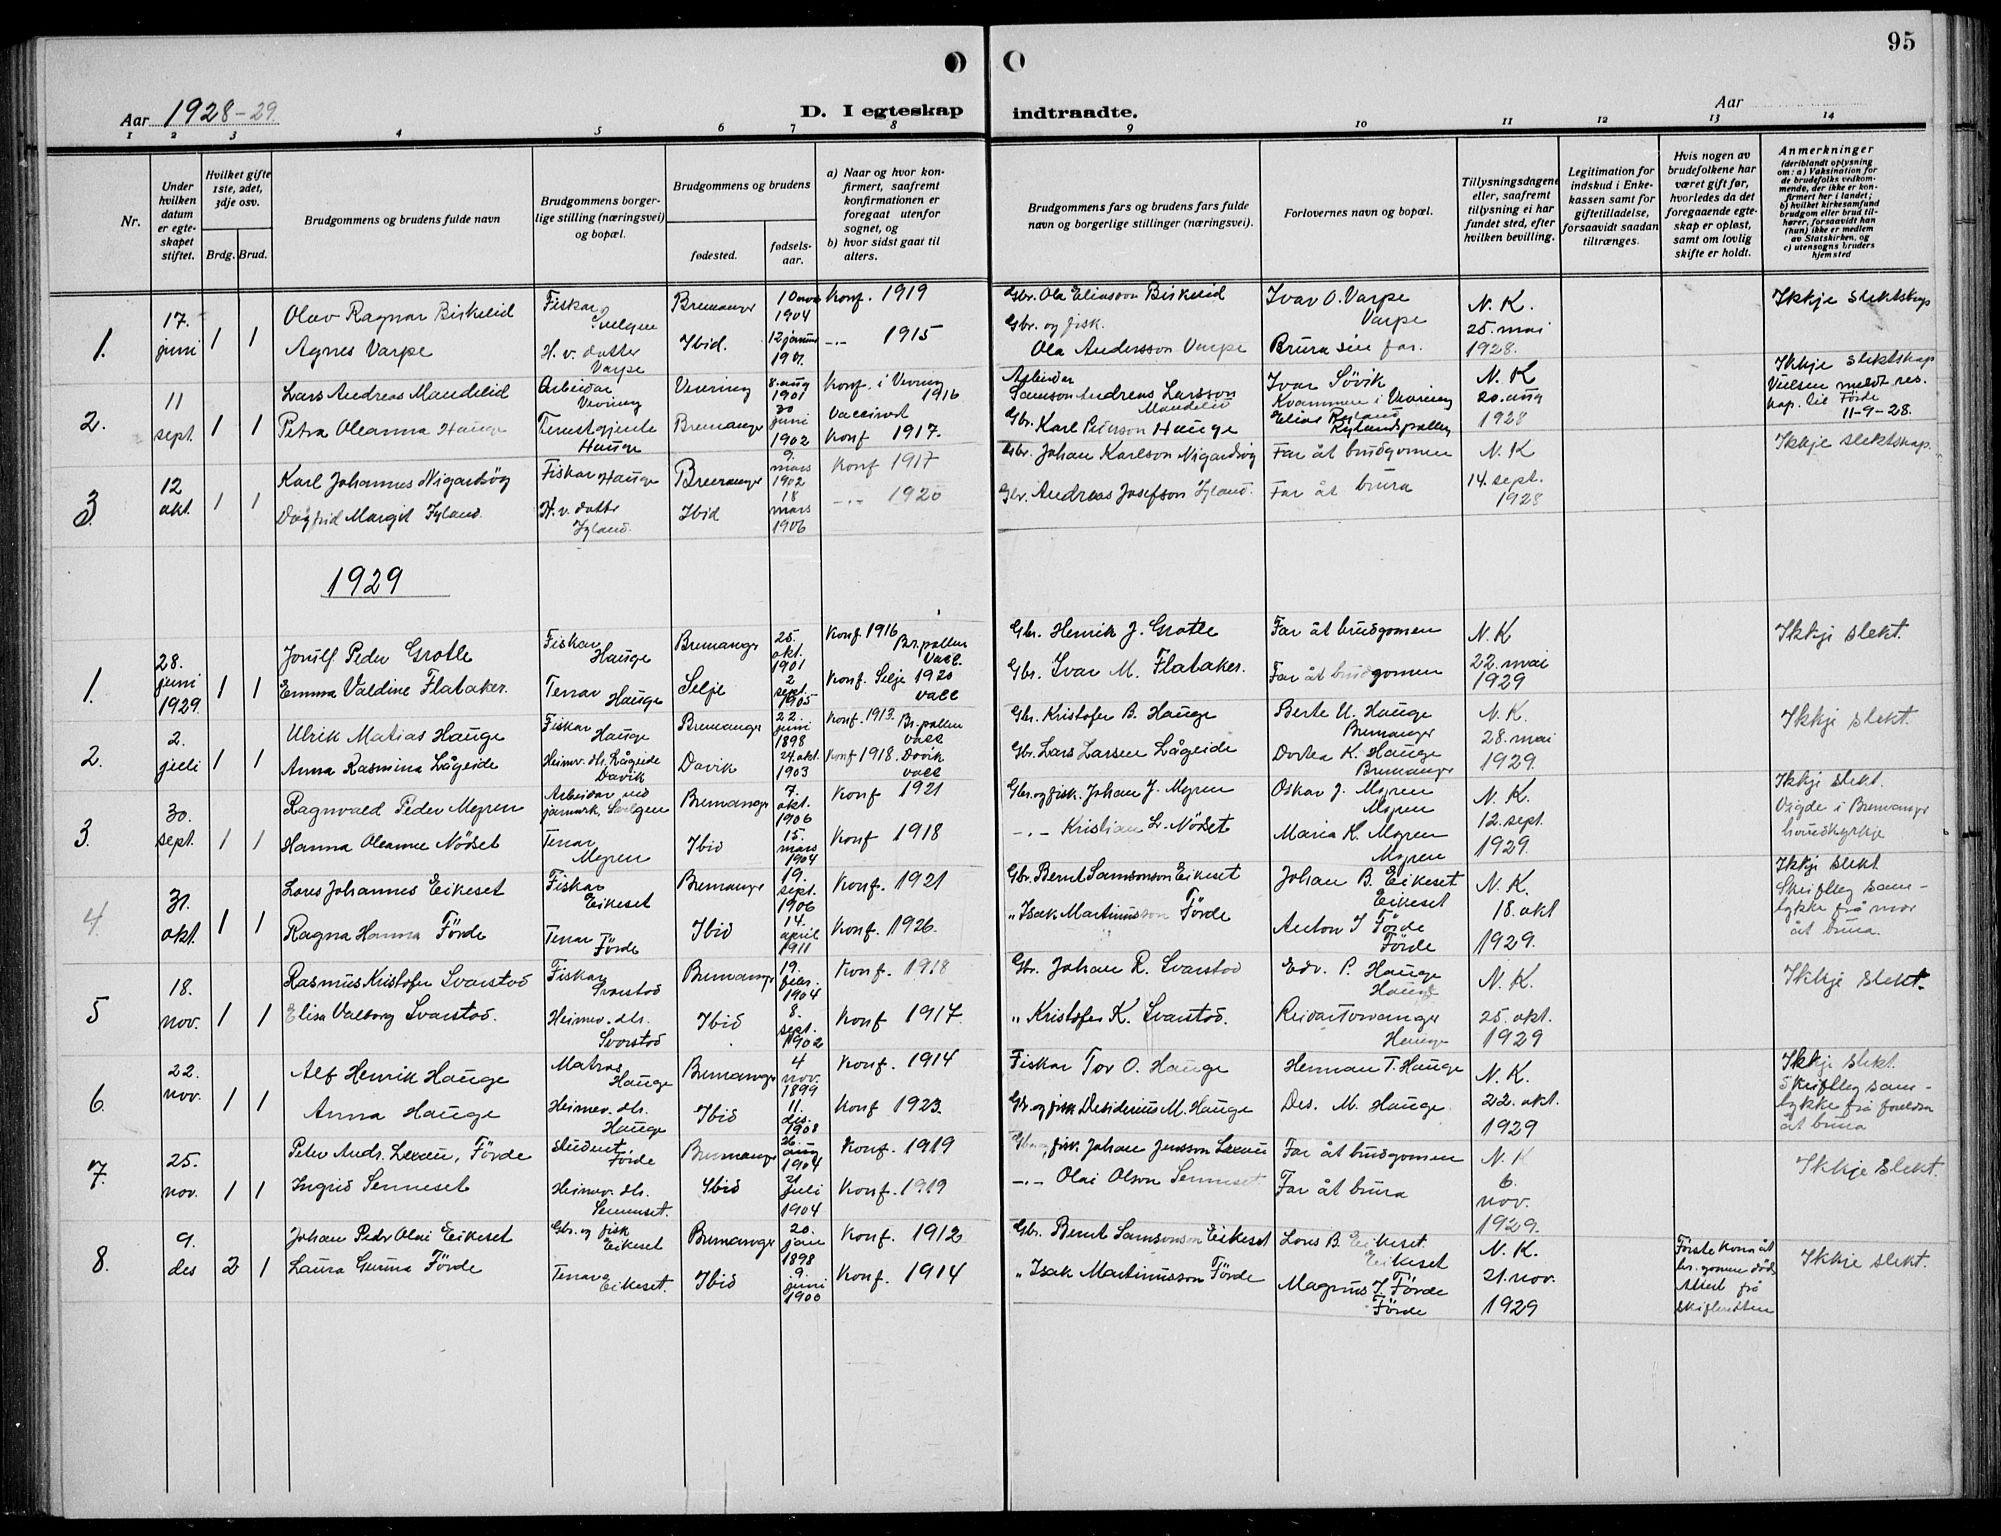 95
Aar 1928-29.
D. I egteskap indtraadte.
Aar
1 2 3 4 5 6 7 8 9 10 11 12 13 14
Nr.
Under hvilken datum er egteskapet stiftet.
Hvilket gifte 1ste, 2det, 3dje osv.
Brdg. Brud.
Brudgommens og brudens fulde navn
Brudgommens borgerlige stilling (næringsvei) og bopæl.
Brudgommens og brudens
fødested.
fødselsaar.
a) Naar og hvor konfirmert, saafremt konfirmationen er foregaat utenfor sognet, og
b) hvor sidst gaat til alters.
Brudgommens fars og brudens fars fulde navn og borgerlige stillinger (næringsvei).
Forlovernes navn og bopæl.
Tillysningsdagene eller, saafremt tillysning ei har fundet sted, efter hvilken bevilling.
Legitimation for indskud i Enkekassen samt for giftetilladelse, forsaavidt saadan tiltrænges.
Hvis nogen av brudefolkene har været gift før, hvorledes da det foregaaende egteskap er opløst, samt om lovlig skifte er holdt.
Anmerkninger (deriblandt oplysning om: a) Vaksination for de brudefolks vedkommende, der ikke er konfirmert her i landet; b) hvilket kirkesamfund brudgom eller brud tilhører, forsaavidt han (hun) ikke er medlem av Statskirken, og c) utensogns bruders hjemsted
1. 17. juni 1 1 Olav Ragnar Birkelid Fiskar Svelgen Bremanger 10 nov 1904 Konf. 1919 Gbr. Ola Eliasson Birkelid Ivar O. Varpe Varpe N. K. 25. mai 1928. Ikkje slektskap
Agnes Varpe H. v. dotter Varpe Ibid. 12 januar 1901 -"- 1915 Gbr. og fisk. Ola Andersson Varpe Brura sin far.
2. 11 sept. 1 1 Lars Andreas Mandelid Arbeidar Vevring Vevring 8. aug 1901 Konf. i Vevring 1916 Arbeidar Samson Andreas Larsson Mandelid Ivar Sövik Kvammen i Vevring N. K 20. aug 1928 Ikkje slektskap Vielsen meldt res. kap. til Förde 11-9-28.
Petra Oleanna Hauge Tenestgjente Hauge Bremanger 30 juni 1902 Vaccinert Konf 1917. Gbr. Karl Peterson Hauge Elias Rylandspollen
3. 12 okt. 1 1 Karl Johannes Nigardsög Fiskar Hauge Bremanger 9. mars 1902 Konf 1917 Gbr. Johan Karlson Nigardsög Far åt brudgomen N. K 14. sept. 1928 Ikkje slektskap.
Dagfrid Margit Igland. H. v. dotter Igland. Ibid 18 mars 1906 -"- 1920 Gbr. Andreas Josefson Igland. Far åt brura
1929
1. 28. juni 1929. 1 1 Jonulf Peder Grotle Fiskar Hauge Bremanger 25. okt. 1901 Konf. 1916 Br.pollen Vacc. Gbr. Henrik J. Grotle Far åt brudgomen N. K 22. mai 1929 Ikkje slekt.
Emma Valdine Flataker. Tenar Hauge Selje 2 sept. 1905 Konf. Selje 1920 vacc Gbr. Ivar M. Flataker. Far åt brudgomen
2. 2. juli 1 1 Ulrik Matias Hauge Fiskar Hauge Bremanger 22. juni 1898 Konf. 1913. Br.pollen vacc Gbr. Kristofer B. Hauge Berte U. Hauge Bremanger N. K. 28. mai 1929. Ikkje slekt.
Anna Rasmina Lågeide Heimev. dtr. Lågeide Davik Davik 24. okt. 1903 Konf 1918. Davik vacc Gbr. Lars Larsen Lågeide Dortea K. Hauge Bremanger
3. 30. sept. 1 1 Ragnvald Peder Myren Arbeidar ved jarnverk, Svelgen Bremanger 7. okt. 1906 Konf 1921 Gbr. og fisk. Johan J. Myren Oskar J. Myren Myren N. K. 12. sept. 1929. Ikkje slekt. Vigde i Bremanger hovudkyrkje
Hanna Oleanne Nödset Tenar Myren Ibid 15. mars 1904 Konf 1918 -"- Kristian L. Nödset Maria K. Myren Myren
4. 31. okt. 1 1 Lars Johannes Eikeset Fiskar Eikeset Bremanger 19. sept. 1906 Konf. 1921 Gbr. Bernt Samsonson Eikeset Johan B. Eikeset Eikeset N. K. 18. okt 1929. Ikkje slekt. Skriftleg samtykke frå mor åt brura.
Ragna Hanna Förde Tenar Förde Ibid 14. april 1911 Konf. 1926. " Isak Martinusson Förde Anton I Förde Förde
5 18. nov. 1 1 Rasmus Kristofer Svarstad Fiskar Svarstad Bremanger 19. febr. 1904 Konf. 1918 Gbr. Johan R. Svarstad Edv. P. Hauge Hauge N. K. 25. okt. 1929 Ikkje slekt.
Elisa Valborg Svarstad. Heimev. dtr. Svarstad Ibid 8. sept. 1902 Konf 1917. " Kristofer K. Svarstad. Hauge
6. 22. nov. 1 1 Alf Henrik Hauge Matros Hauge Bremanger 4 nov. 1899 Konf. 1914 Fiskar Tor O. Hauge Herman T. Hauge N. K. 22. okt. 1929 Ikkje slekt. Skriftleg samtykke frå foreldra åt brura
Anna Hauge Heimev. dtr. Hauge Ibid 11. des. 1908 Konf 1923. Gbr og fisk Desiderius M. Hauge Des. M. Hauge
7. 25. nov. 1 1 Peter Andr. Lexau, Förde Student Förde Bremanger 26. aug 1904 Konf. 1919 Gbr og fisk Johan Jensson Lexau Far åt brudgomen N. K 6. nov. 1929. Ikkje slekt
Ingrid Senneset Heimev. dtr. Senneset. Ibid 21 juli 1904 Konf. 1919 -"- Olai Olson Senneset. Far åt brura
8. 9. des 2 1 Johan Peder Olai Eikeset Gbr. og fisk Eikeset Bremanger 20. jan 1898 Konf. 1912 Gbr. Bernt Samsonson Eikeset Lars B. Eikeset. Eikeset N. K. 21. nov. 1929 Förste kona åt br.gomen död. Attest frå skifteretten Ikkje slekt.
Laura Gurina Förde Tenar Eikeset. Ibid 9. juni 1900 Konf. 1914 " Isak Martinusson Förde Magnus I. Förde Förde